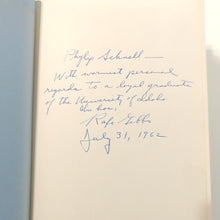 Phylip Schnell —
With warmest personal
regards to a loyal graduate
of the University of Idaho
Rafe Gibbs
July 31, 1962